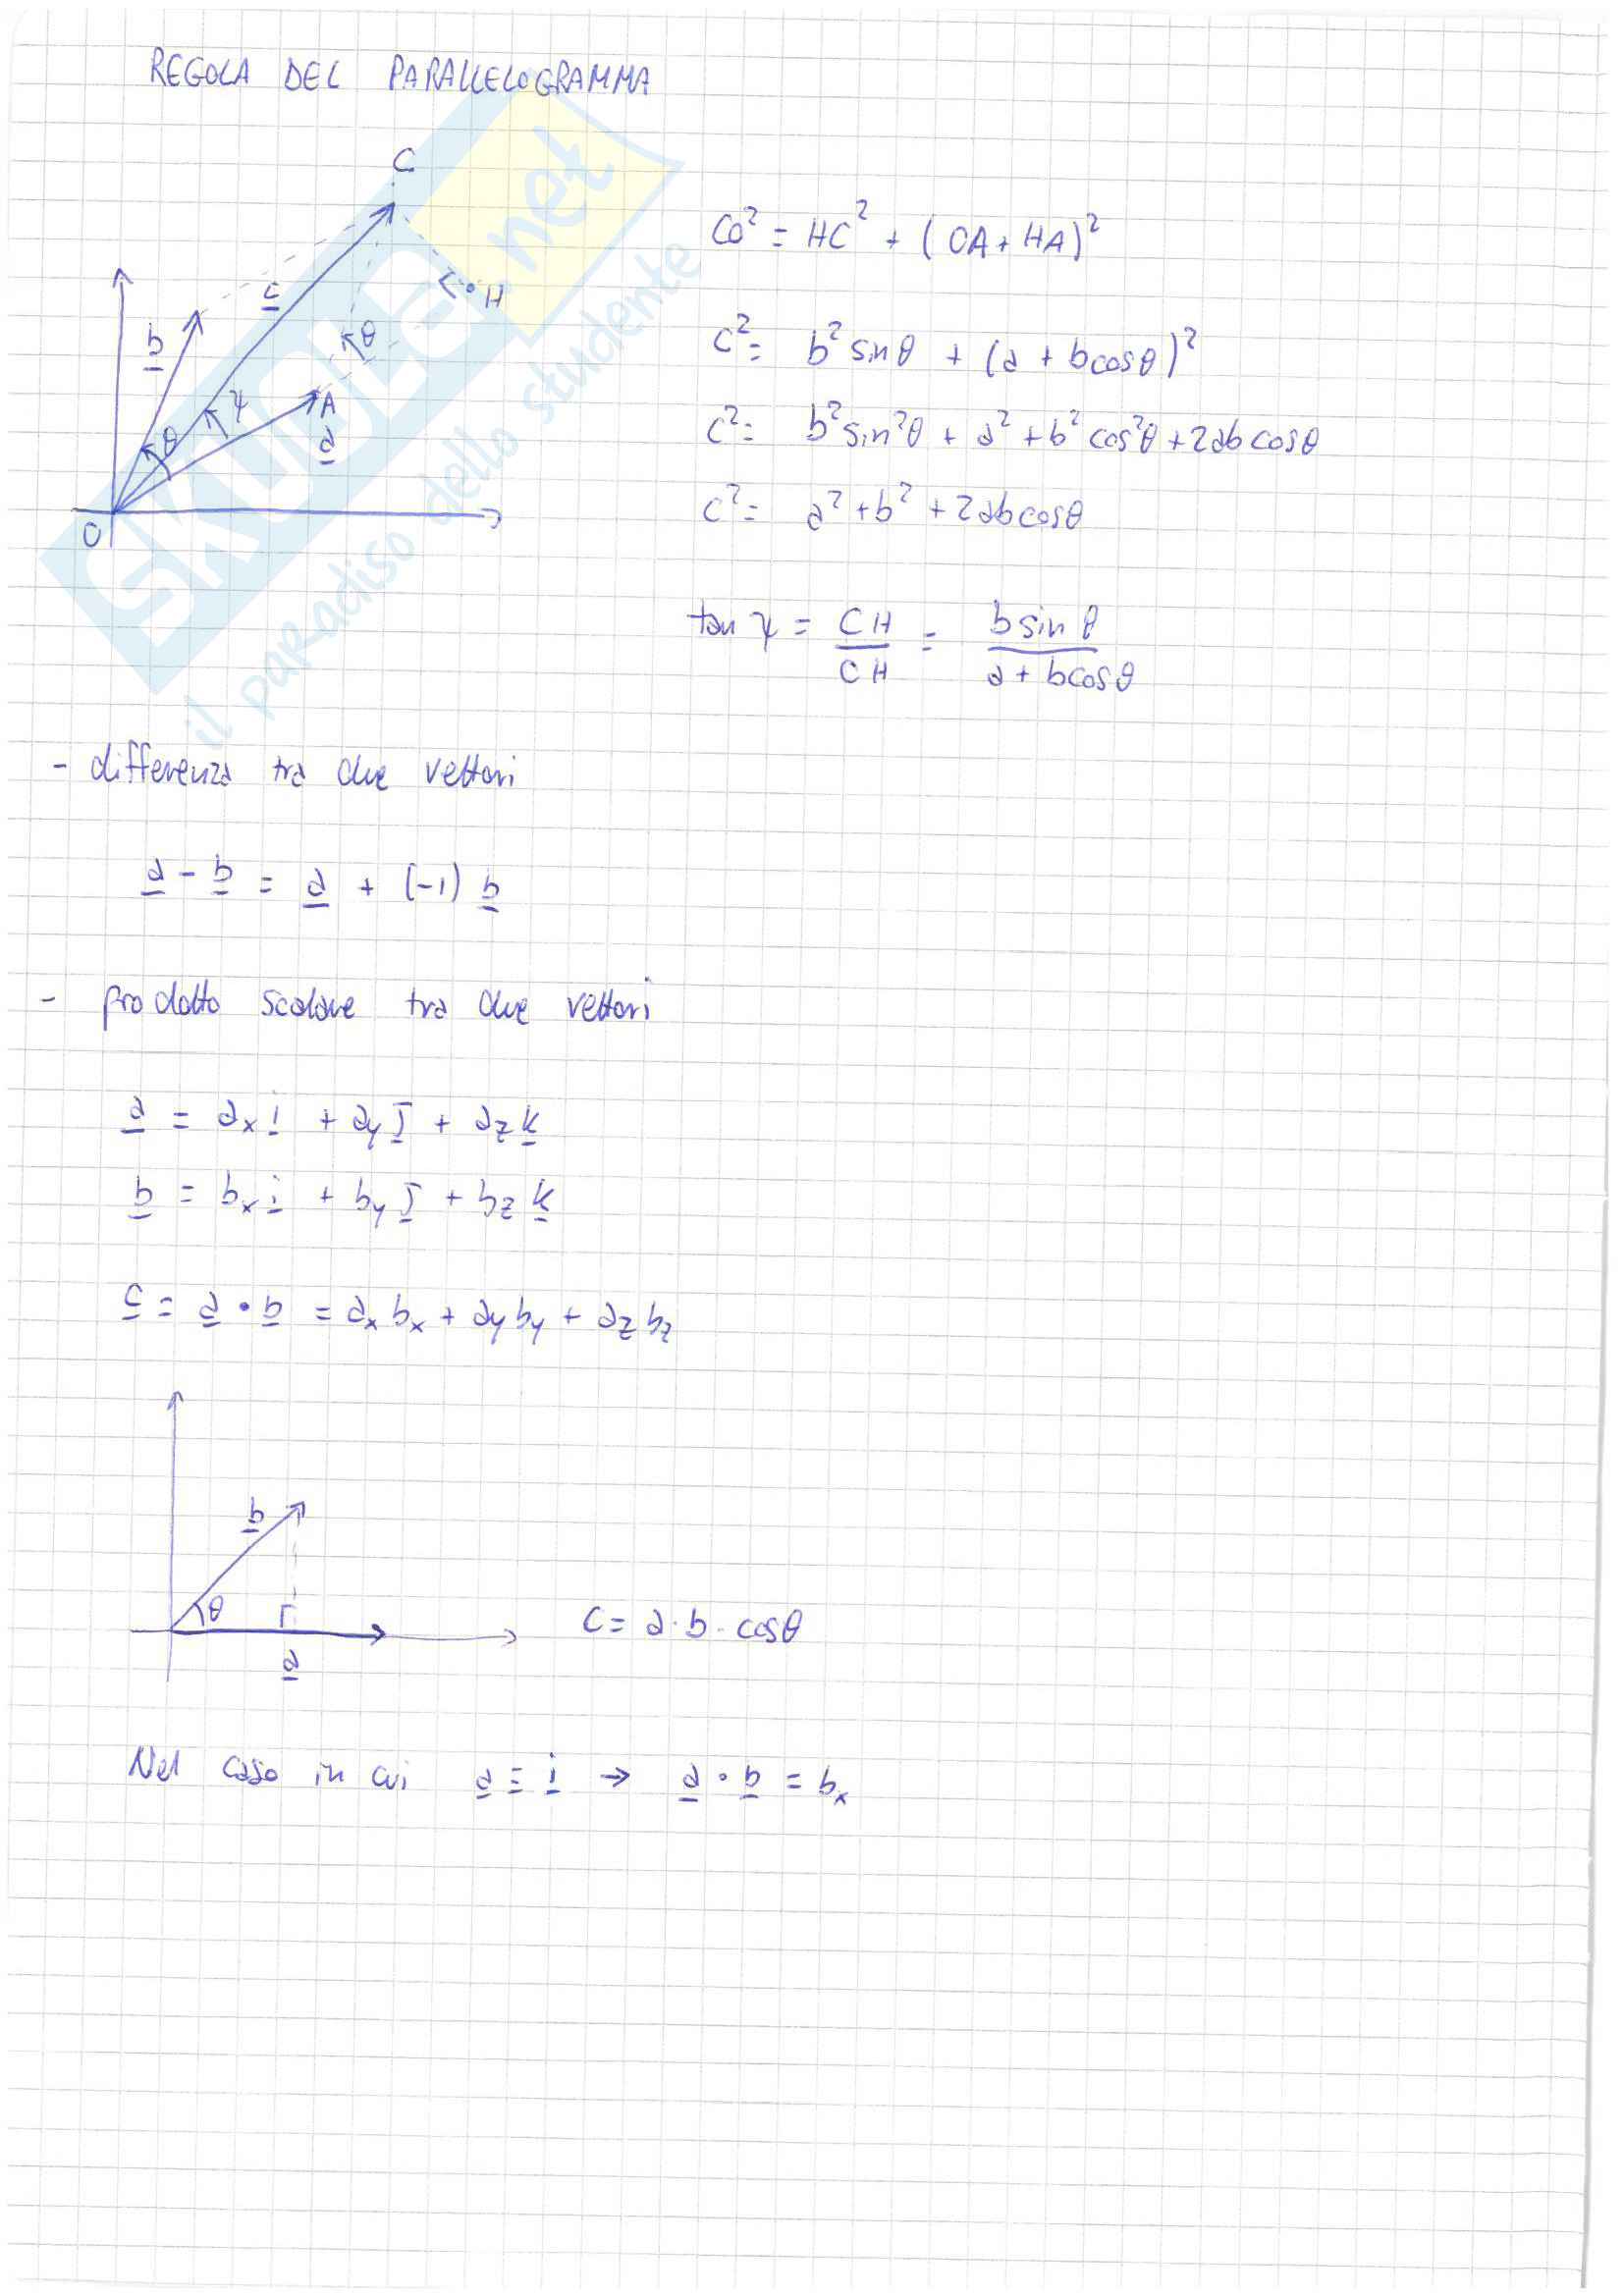 REGOLA DEL PARALLELOGRAMMA
C
CO² = HC² + (OA + HA)²
c
H
b
θ
c² = b² sinθ + (a + b cosθ)²
ψ
A
θ
a
c² = b² sin²θ + a² + b² cos²θ + 2ab cosθ
c² = a² + b² + 2ab cosθ
O
tan ψ = CH/CH = b sin θ / a + b cosθ
SKUOLA.net
il paradiso dello studente
- differenza tra due vettori
a - b = a + (-1) b
- prodotto scalare tra due vettori
a = aₓ i + a_y j + a_z k
b = bₓ i + b_y j + b_z k
c = a • b = aₓ bₓ + a_y b_y + a_z b_z
b
θ
a
c = a · b · cosθ
Nel caso in cui a ≡ i → a • b = bₓ